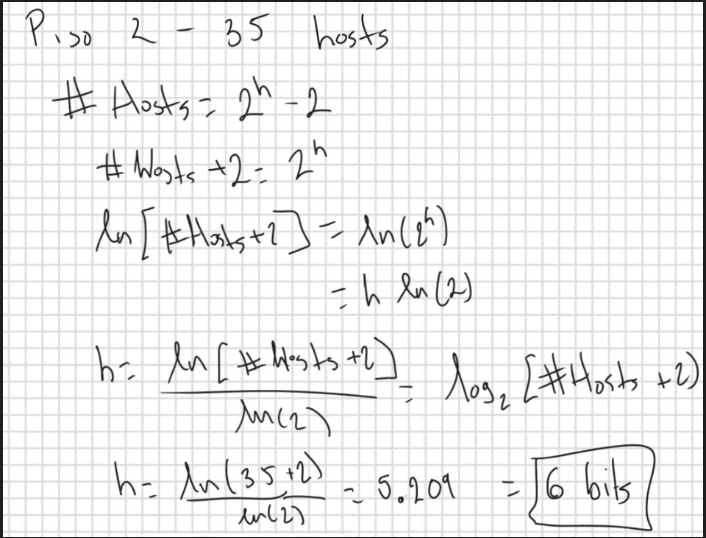 Piso 2 - 35 hosts
# Hosts = 2^h - 2
# Hosts + 2 = 2^h
ln [#Hosts+2] = ln(2^h)
= h ln(2)
h = ln [# Hosts + 2] / ln(2) = log₂ [#Hosts + 2)
h = ln(35+2) / ln(2) = 5.209 = 6 bits